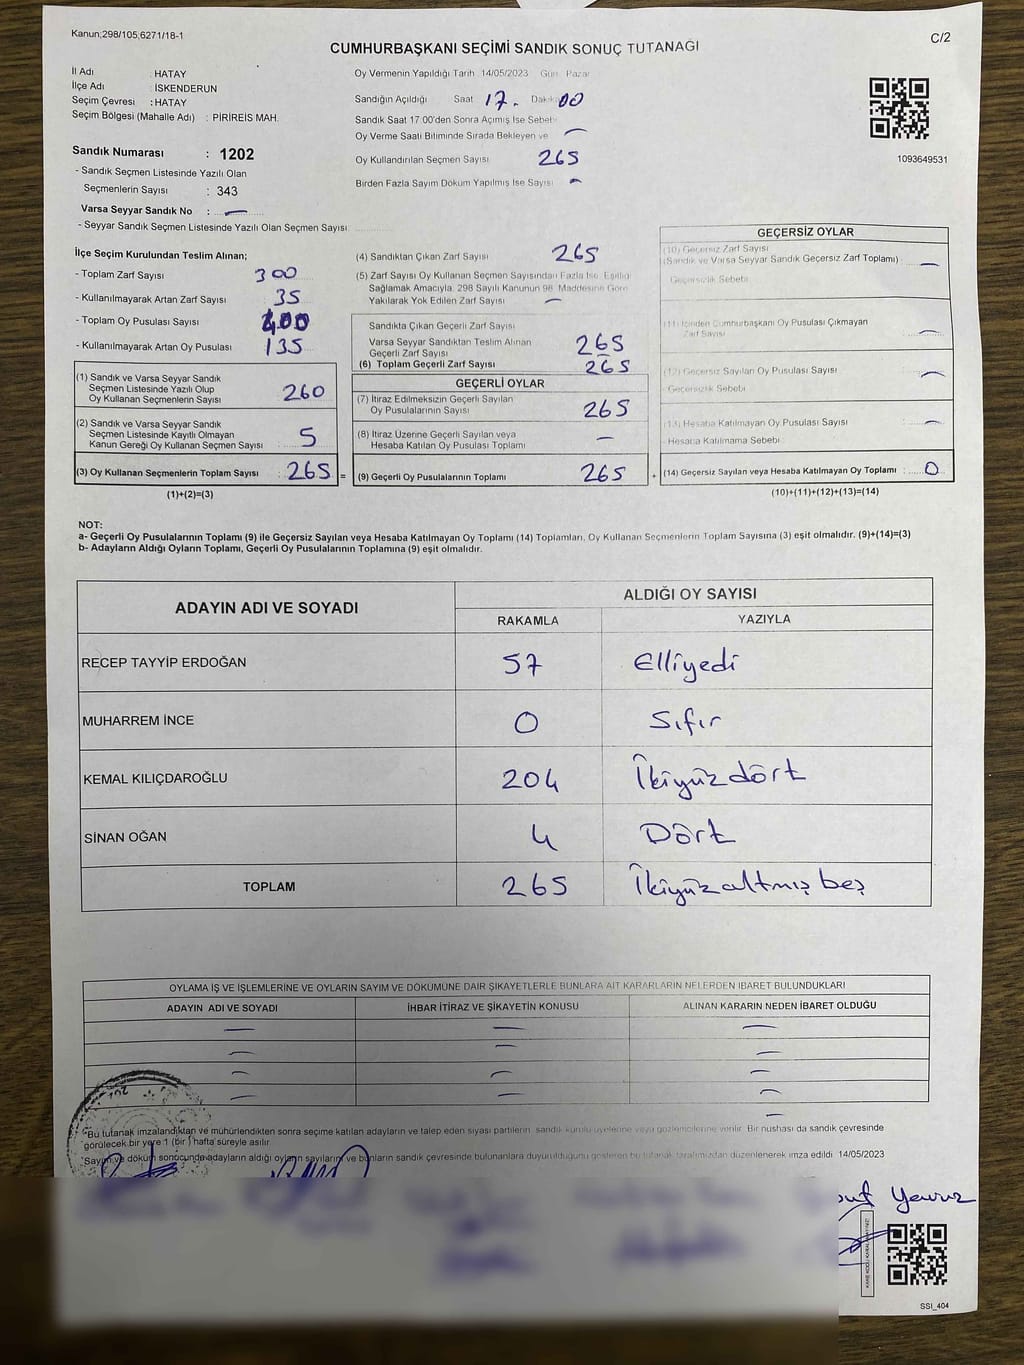 Kanun;298/105,6271/18-1
C/2
CUMHURBAŞKANI SEÇİMİ SANDIK SONUÇ TUTANAĞI
İl Adı : HATAY
İlçe Adı : İSKENDERUN
Seçim Çevresi : HATAY
Seçim Bölgesi (Mahalle Adı) : PİRİREİS MAH.
Sandık Numarası : 1202
- Sandık Seçmen Listesinde Yazılı Olan
Seçmenlerin Sayısı : 343
Varsa Seyyar Sandık No : —
- Seyyar Sandık Seçmen Listesinde Yazılı Olan Seçmen Sayısı
Oy Vermenin Yapıldığı Tarih 14/05/2023 Gün Pazar
Sandığın Açıldığı Saat 17. Dakika 00
Sandık Saat 17:00'den Sonra Açımış İse Sebebi
Oy Verme Saati Bitiminde Sırada Bekleyen ve —
Oy Kullandırılan Seçmen Sayısı 265
Birden Fazla Sayım Döküm Yapılmış İse Sayısı —
1093649531
İlçe Seçim Kurulundan Teslim Alınan;
- Toplam Zarf Sayısı 300
- Kullanılmayarak Artan Zarf Sayısı 35
- Toplam Oy Pusulası Sayısı 400
- Kullanılmayarak Artan Oy Pusulası 135
(1) Sandık ve Varsa Seyyar Sandık
Seçmen Listesinde Yazılı Olup
Oy Kullanan Seçmenlerin Sayısı 260
(2) Sandık ve Varsa Seyyar Sandık
Seçmen Listesinde Kayıtlı Olmayan
Kanun Gereği Oy Kullanan Seçmen Sayısı 5
(3) Oy Kullanan Seçmenlerin Toplam Sayısı : 265 =
(1)+(2)=(3)
(4) Sandıktan Çıkan Zarf Sayısı 265
(5) Zarf Sayısı Oy Kullanan Seçmen Sayısından Fazla İse, Eşitliği
Sağlamak Amacıyla, 298 Sayılı Kanunun 98. Maddesine Göre
Yakılarak Yok Edilen Zarf Sayısı —
Sandıkta Çıkan Geçerli Zarf Sayısı
Varsa Seyyar Sandıktan Teslim Alınan
Geçerli Zarf Sayısı 265
(6) Toplam Geçerli Zarf Sayısı 265
GEÇERLİ OYLAR
(7) İtiraz Edilmeksizin Geçerli Sayılan
Oy Pusulalarının Sayısı 265
(8) İtiraz Üzerine Geçerli Sayılan veya
Hesaba Katılan Oy Pusulası Toplamı —
(9) Geçerli Oy Pusulalarının Toplamı 265 +
GEÇERSİZ OYLAR
(10) Geçersiz Zarf Sayısı
(Sandık ve Varsa Seyyar Sandık Geçersiz Zarf Toplamı) —
Geçersizlik Sebebi
(11) İçinden Cumhurbaşkanı Oy Pusulası Çıkmayan
Zarf Sayısı —
(12) Geçersiz Sayılan Oy Pusulası Sayısı —
Geçersizlik Sebebi
(13) Hesaba Katılmayan Oy Pusulası Sayısı —
Hesaba Katılmama Sebebi
(14) Geçersiz Sayılan veya Hesaba Katılmayan Oy Toplamı : 0
(10)+(11)+(12)+(13)=(14)
NOT:
a- Geçerli Oy Pusulalarının Toplamı (9) ile Geçersiz Sayılan veya Hesaba Katılmayan Oy Toplamı (14) Toplamları, Oy Kullanan Seçmenlerin Toplam Sayısına (3) eşit olmalıdır. (9)+(14)=(3)
b- Adayların Aldığı Oyların Toplamı, Geçerli Oy Pusulalarının Toplamına (9) eşit olmalıdır.
ADAYIN ADI VE SOYADI
ALDIĞI OY SAYISI
RAKAMLA YAZIYLA
RECEP TAYYİP ERDOĞAN 57 Elliyedi
MUHARREM İNCE 0 Sıfır
KEMAL KILIÇDAROĞLU 204 İkiyüzdört
SİNAN OĞAN 4 Dört
TOPLAM 265 İkiyüzaltmış beş
OYLAMA İŞ VE İŞLEMLERİNE VE OYLARIN SAYIM VE DÖKÜMÜNE DAİR ŞİKAYETLERLE BUNLARA AİT KARARLARIN NELERDEN İBARET BULUNDUKLARI
ADAYIN ADI VE SOYADI İHBAR İTİRAZ VE ŞİKAYETİN KONUSU ALINAN KARARIN NEDEN İBARET OLDUĞU
*Bu tutanak imzalandıktan ve mühürlendikten sonra seçime katılan adayların ve talep eden siyasi partilerin sandık kurulu üyelerine veya gözlemcilerine verilir. Bir nüshası da sandık çevresinde
görülecek bir yere 1 (bir) hafta süreyle asılır.
*Sayım ve döküm sonucunda adayların aldığı oyların sayılarını ve bunların sandık çevresinde bulunanlara duyurulduğunu gösteren bu tutanak tarafımızdan düzenlenerek imza edildi. 14/05/2023
Yavuz
SSI_404